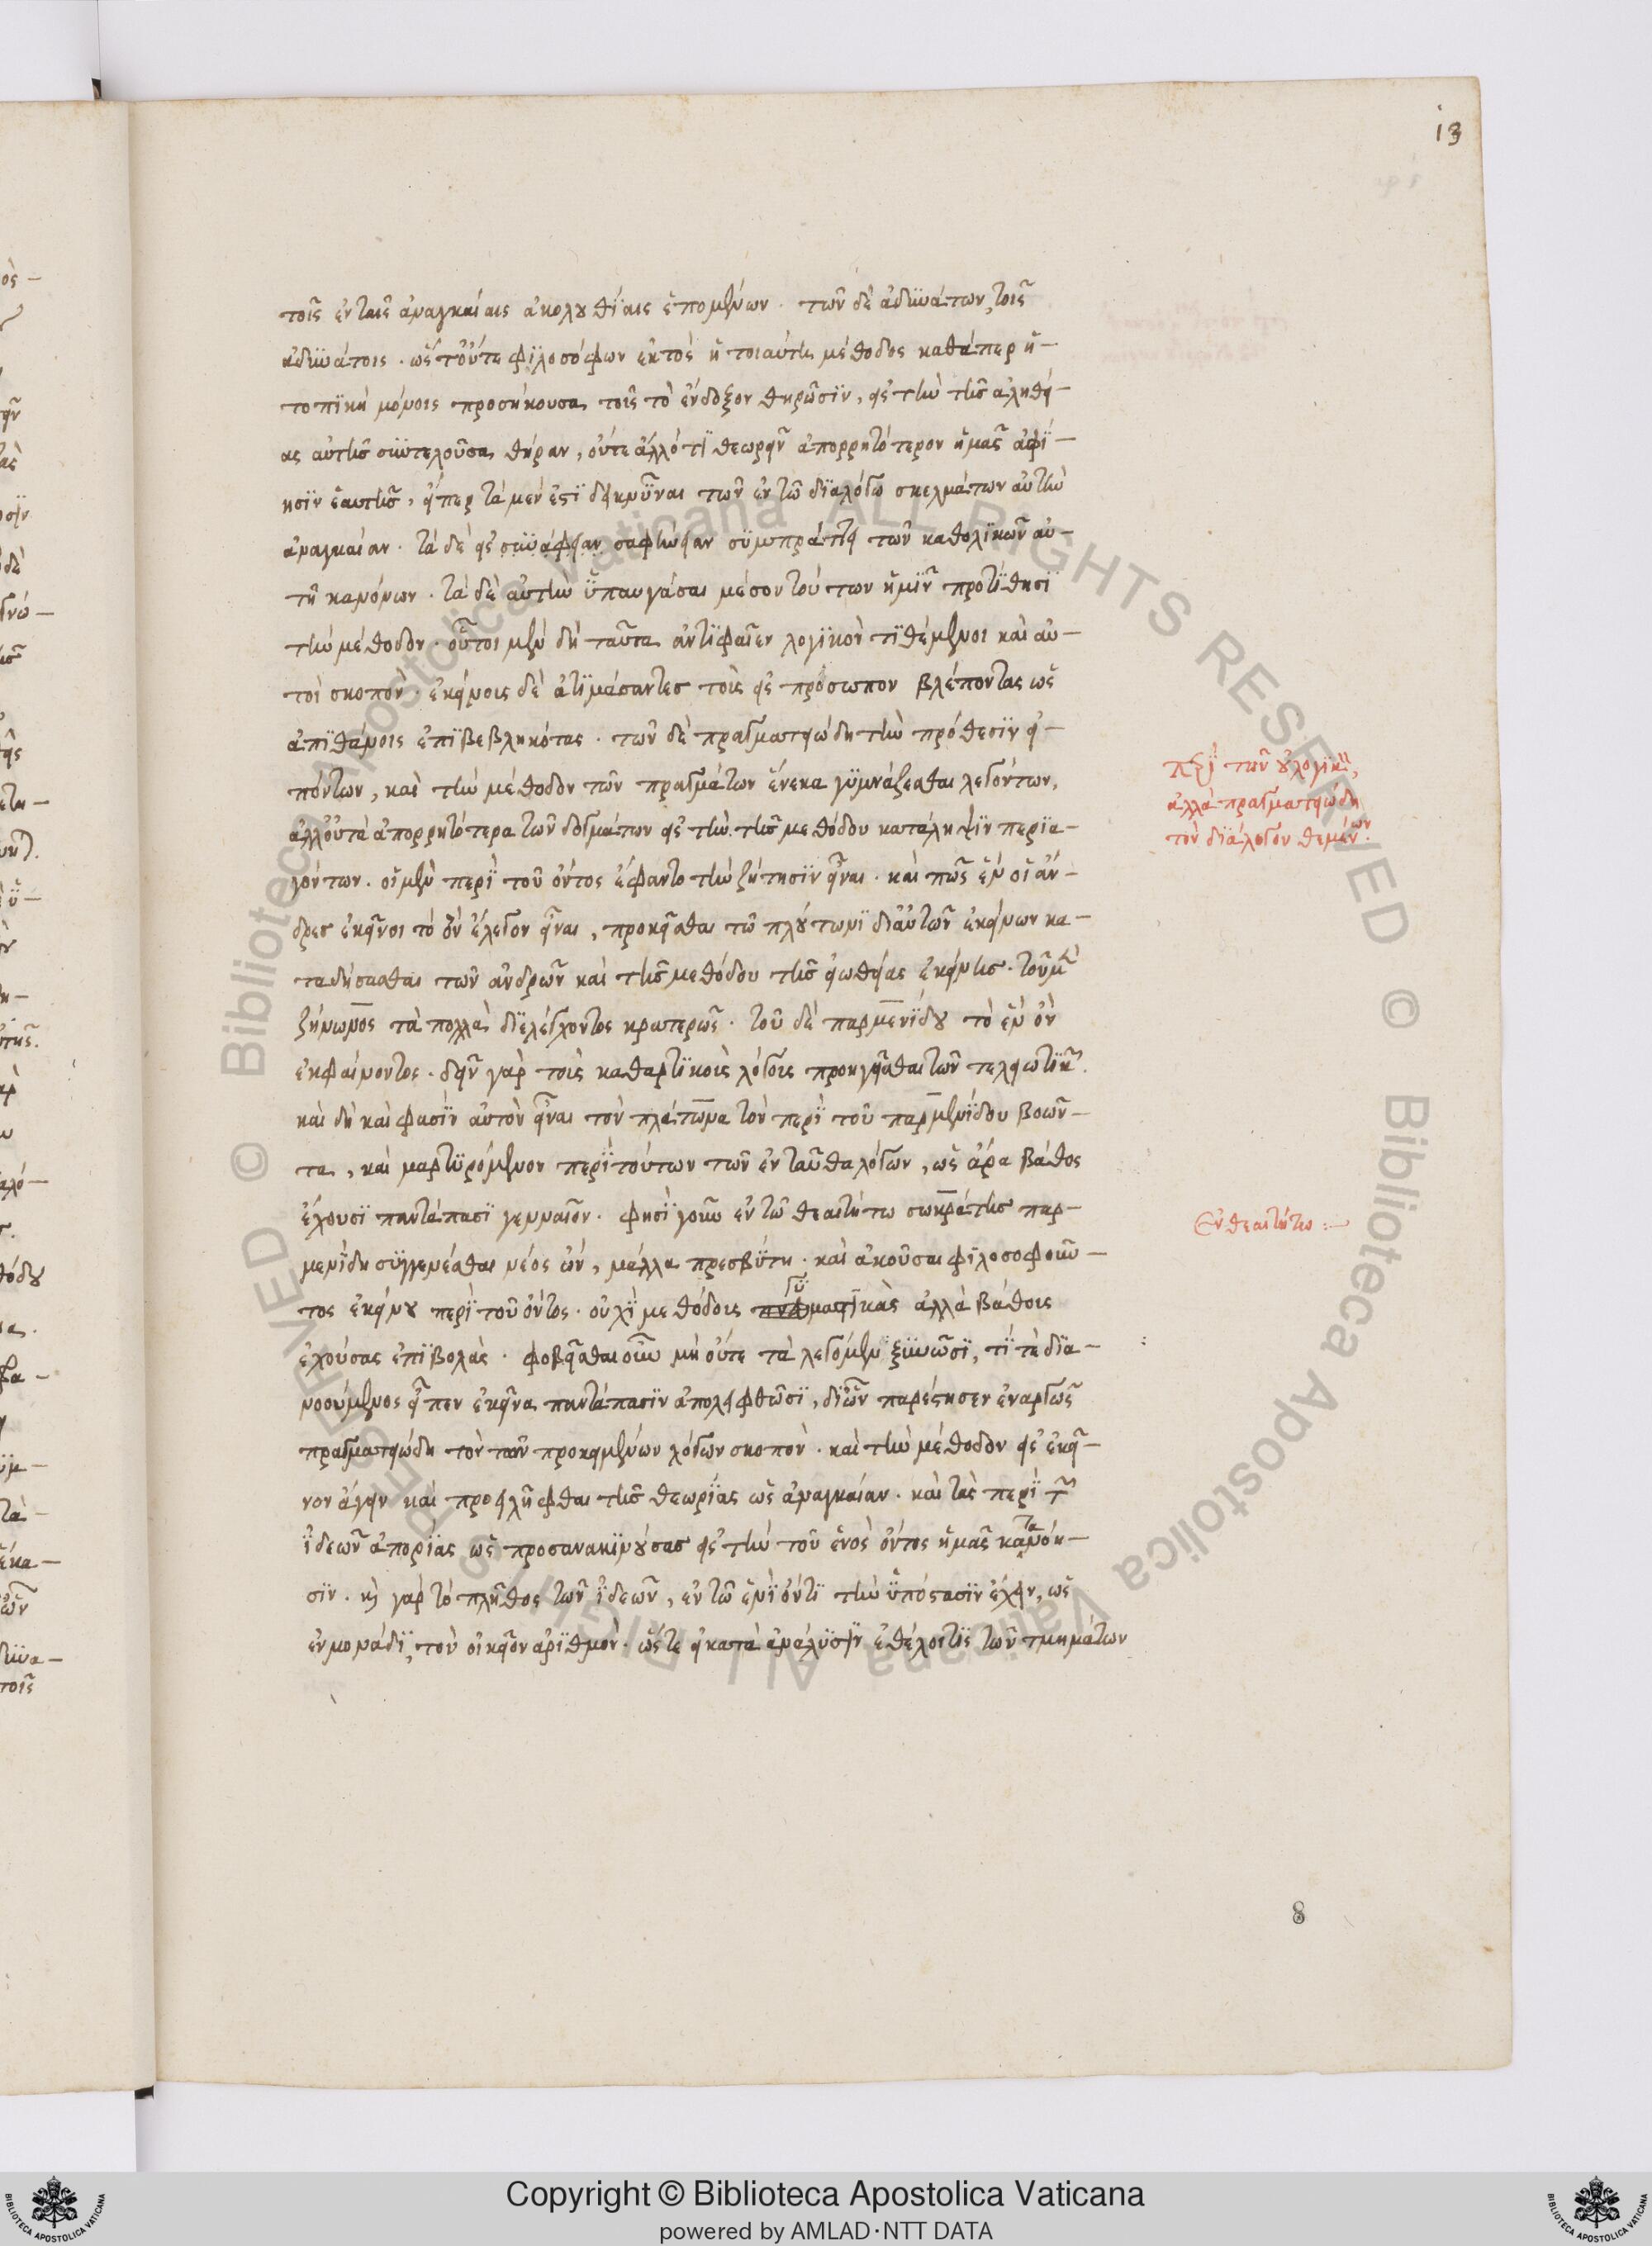 13
τοῖς ἐν ταῖς ἀναγκαίαις ἀκολουθίαις ἑπομένων · τῶν δὲ ἀδυνάτων, τοῖς
ἀδυνάτοις · ὥστ' οὔτε φιλοσόφων ἐκτὸς ἡ τοιαύτη μέθοδος καθάπερ ἡ –
τοπικὴ μόνοις προσήκουσα τοῖς τὸ ἔνδοξον θηρῶσιν, εἰς τὴν τῆς ἀληθεί –
ας αὐτῆς συντελοῦσα θήραν, οὔτε ἄλλό τι θεωρεῖν ἀπορρητότερον ἡμᾶς ἀφί –
ησιν ἑαυτῆς, εἴπερ τὰ μέν ἐστι δεικνῦναι τῶν ἐν τῷ διαλόγῳ σκεμμάτων αὐτὴν
ἀναγκαίαν · τὰ δὲ εἰς συνάφειαν σαφήνειαν συμπράττει τῶν καθολικῶν αὐ –
τῆ κανόνων · τὰ δὲ αὐτὴν ὑπαυγάσαι μέσον τούτων ἡμῖν προτίθησι
τὴν μέθοδον · οὗτοι μὲν δὴ ταῦτα ἀντιφαῖεν λογικὸν τιθέμενοι καὶ αὐ –
τοὶ σκοπόν · ἐκείνοις δὲ ἀτιμάσαντες τοῖς εἰς πρόσωπον βλέποντας ὡς
ἀπιθάνοις ἐπιβεβληκότας · τῶν δὲ πραγματειώδη τὴν πρόθεσιν εἰ –
πόντων, καὶ τὴν μέθοδον τῶν πραγμάτων ἕνεκα γυμνάζεσθαι λεγόντων,
ἀλλ' οὐ τὰ ἀπορρητότερα τῶν δογμάτων εἰς τὴν τῆς μεθόδου κατάληψιν περια –
γόντων · οἱ μὲν περὶ τοῦ ὄντος ἔφαντο τὴν ζήτησιν εἶναι · καὶ πῶς ἓν οἱ ἄν –
δρες ἐκεῖνοι τὸ ὂν ἔλεγον εἶναι, προκεῖσθαι τῷ πλάτωνι δι' αὐτῶν ἐκείνων κα –
ταδήσασθαι τῶν ἀνδρῶν καὶ τῆς μεθόδου τῆς εἰωθείας ἐκείνης · τοῦ μὲν
ζήνωνος τὰ πολλὰ διελέγχοντος κρατερῶς · τοῦ δὲ παρμενίδου τὸ ἓν ὂν
ἐκφαίνοντος · δεῖν γὰρ τοὶς καθαρτικοὶς λόγοις προηγεῖσθαι τῶν τελειωτικῶν.
καὶ δὴ καὶ φασὶν αὐτὸν εἶναι τὸν πλάτωνα τὸν περὶ τοῦ παρμενίδου βοῶν –
τα, καὶ μαρτυρόμενον περὶ τούτων τῶν ἐνταῦθα λόγων, ὡς ἄρα βάθος
ἔχουσι παντάπασι γενναῖον · φησὶ γοῦν ἐν τῷ θεαιτήτω σωκράτης παρ –
μενίδη συγγενέσθαι νέος ὤν, μάλλα πρεσβύτη · καὶ ἀκοῦσαι φιλοσοφοῦν –
τος ἐκείνου περὶ τοῦ ὄντος · οὐχὶ μεθόδοις γυμναστικὰς ἀλλὰ βάθοις
ἐχούσας ἐπιβολὰς · φοβεῖσθαι οὖν μὴ οὔτε τὰ λεγόμενα ξυνιῶσι, τί τὲ δια –
νοούμενος εἶπεν ἐκεῖνα παντάπασιν ἀπολειφθῶσι, δι' ὧν παρέστησεν ἐναργῶς
πραγματειώδη τὸν τῶν προκειμένων λόγων σκοπὸν · καὶ τὴν μέθοδον εἰς ἐκεῖ –
νον ἄγειν καὶ προειλῆφθαι τῆς θεωρίας ὡς ἀναγκαίαν · καὶ τὰς περὶ τῶν
ἰδεῶν ἀπορίας ὡς προσανακινούσας εἰς τὴν τοῦ ἑνὸς ὄντος ἡμᾶς κατανόη –
σιν · καὶ γὰρ τὸ πλῆθος τῶν ἰδεῶν, ἐν τῷ ἑνὶ ὄντι τὴν ὑπόστασιν ἔχειν, ὡς
ἐν μονάδι, τὸν οἰκεῖον ἀριθμὸν · ὥστε εἰ κατὰ ἀνάλυσιν ἐθέλοι τὶς τῶν τμημάτων
Περὶ τῶν οὐ λογικὸν,
ἀλλὰ πραγματειώδη
τὸν διάλογον θεμένων.
Ἐν θεαιτήτω :–
8
© Biblioteca Apostolica Vaticana ALL RIGHTS RESERVED © Biblioteca Apostolica Vaticana ALL RIGHTS RESERVED
Copyright © Biblioteca Apostolica Vaticana
powered by AMLAD·NTT DATA
BIBLIOTECA APOSTOLICA VATICANA
BIBLIOTECA APOSTOLICA VATICANA